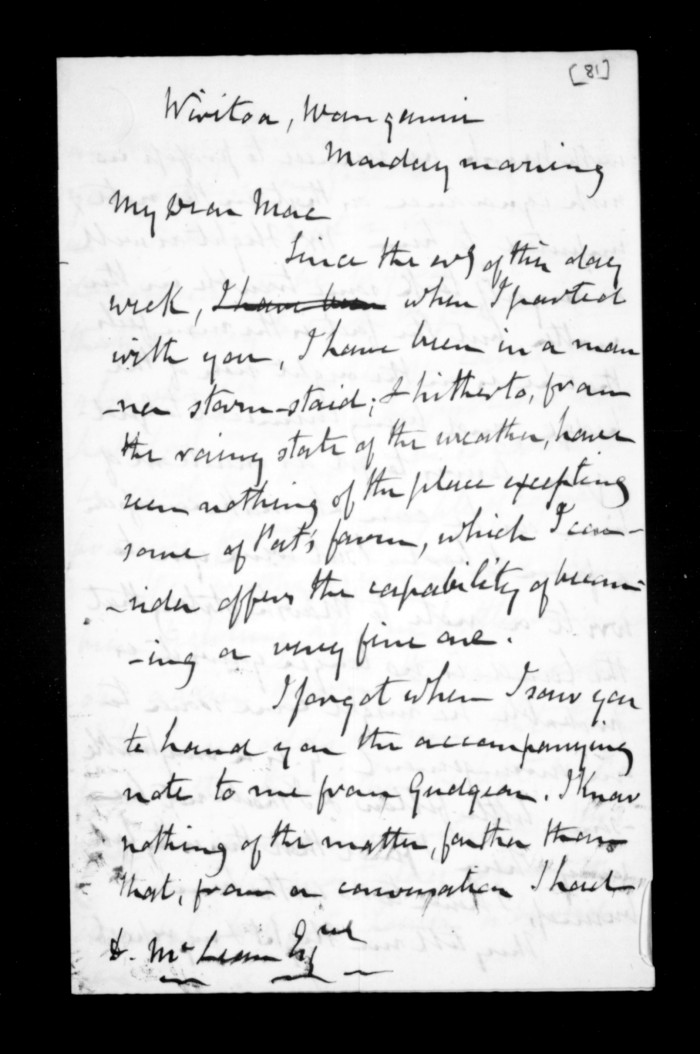 [81]
Wiritoa, Wanganui
Monday morning
My Dear Mac
Since the evg of this day
week, I have been when I parted
with you, I have been in a man
-ner storm-staid; & hitherto, from
the rainy state of the weather, have
seen nothing of the place excepting
some of Pat's farm, which I con-
-sider offers the capability of becom-
-ing a very fine one.
I forgot when I saw you
to hand you the accompanying
note to me from Gudgeon. I know
nothing of the matter, farther than
that, from a conversation I had
D. McLean Esq